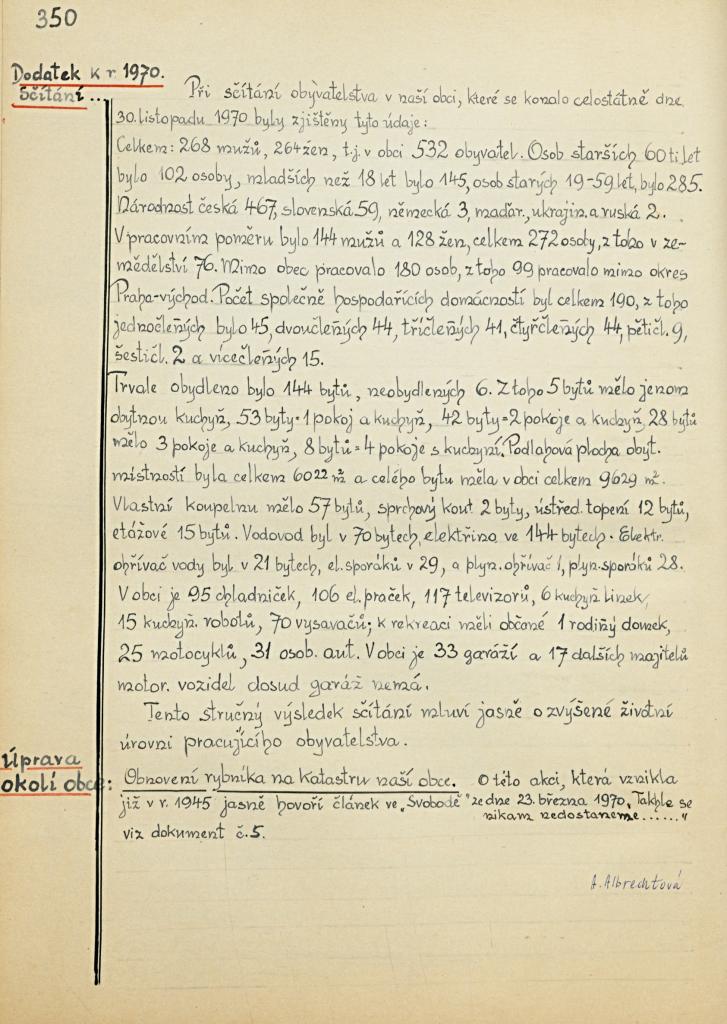 350
Dodatek k r. 1970.
Sčítání...
Při sčítání obyvatelstva v naší obci, které se konalo celostátně dne
30. listopadu 1970 byly zjištěny tyto údaje:
Celkem: 268 mužů, 264 žen, t.j. v obci 532 obyvatel. Osob starších 60 ti let
bylo 102 osoby, mladších než 18 let bylo 145, osob starých 19-59 let, bylo 285.
Národnost česká 467, slovenská 59, německá 3, maďar., ukrajin. a ruská 2.
V pracovním poměru bylo 144 mužů a 128 žen, celkem 272 osoby, z toho v ze-
mědělství 76. Mimo obec pracovalo 180 osob, z toho 99 pracovalo mimo okres
Praha-východ. Počet společně hospodařících domácností byl celkem 190, z toho
jednočlenných bylo 45, dvoučlenných 44, tříčlenných 41, čtyřčlenných 44, pětičl. 9,
šestičl. 2 a vícečlenných 15.
Trvale obydleno bylo 144 bytů, neobydlených 6. Z toho 5 bytů mělo jenom
obytnou kuchyň, 53 byty = 1 pokoj a kuchyň, 42 byty = 2 pokoje a kuchyň, 28 bytů
mělo 3 pokoje a kuchyň, 8 bytů = 4 pokoje s kuchyní. Podlahová plocha obyt.
místností byla celkem 6022 m² a celého bytu měla v obci celkem 9629 m².
Vlastní koupelnu mělo 57 bytů, sprchový kout 2 byty, ústřed. topení 12 bytů,
etážové 15 bytů. Vodovod byl v 70 bytech, elektřina ve 144 bytech. Elektr.
ohřívač vody byl v 21 bytech, el. sporáků v 29, a plyn. ohřívač 1, plyn. sporáků 28.
V obci je 95 chladniček, 106 el. praček, 117 televizorů, 6 kuchyň. linek,
15 kuchyň. robotů, 70 vysavačů; k rekreaci měli občané 1 rodiný domek,
25 motocyklů, 31 osob. aut. V obci je 33 garáží a 17 dalších majitelů
motor. vozidel dosud garáž nemá.
Tento stručný výsledek sčítání mluví jasně o zvýšené životní
úrovni pracujícího obyvatelstva.
Úprava
okolí obce:
Obnovení rybníka na katastru naší obce. O této akci, která vznikla
již v r. 1945 jasně hovoří článek ve „Svobodě" ze dne 23. března 1970, „Takhle se
nikam nedostaneme......"
viz dokument č. 5.
A. Albrechtová